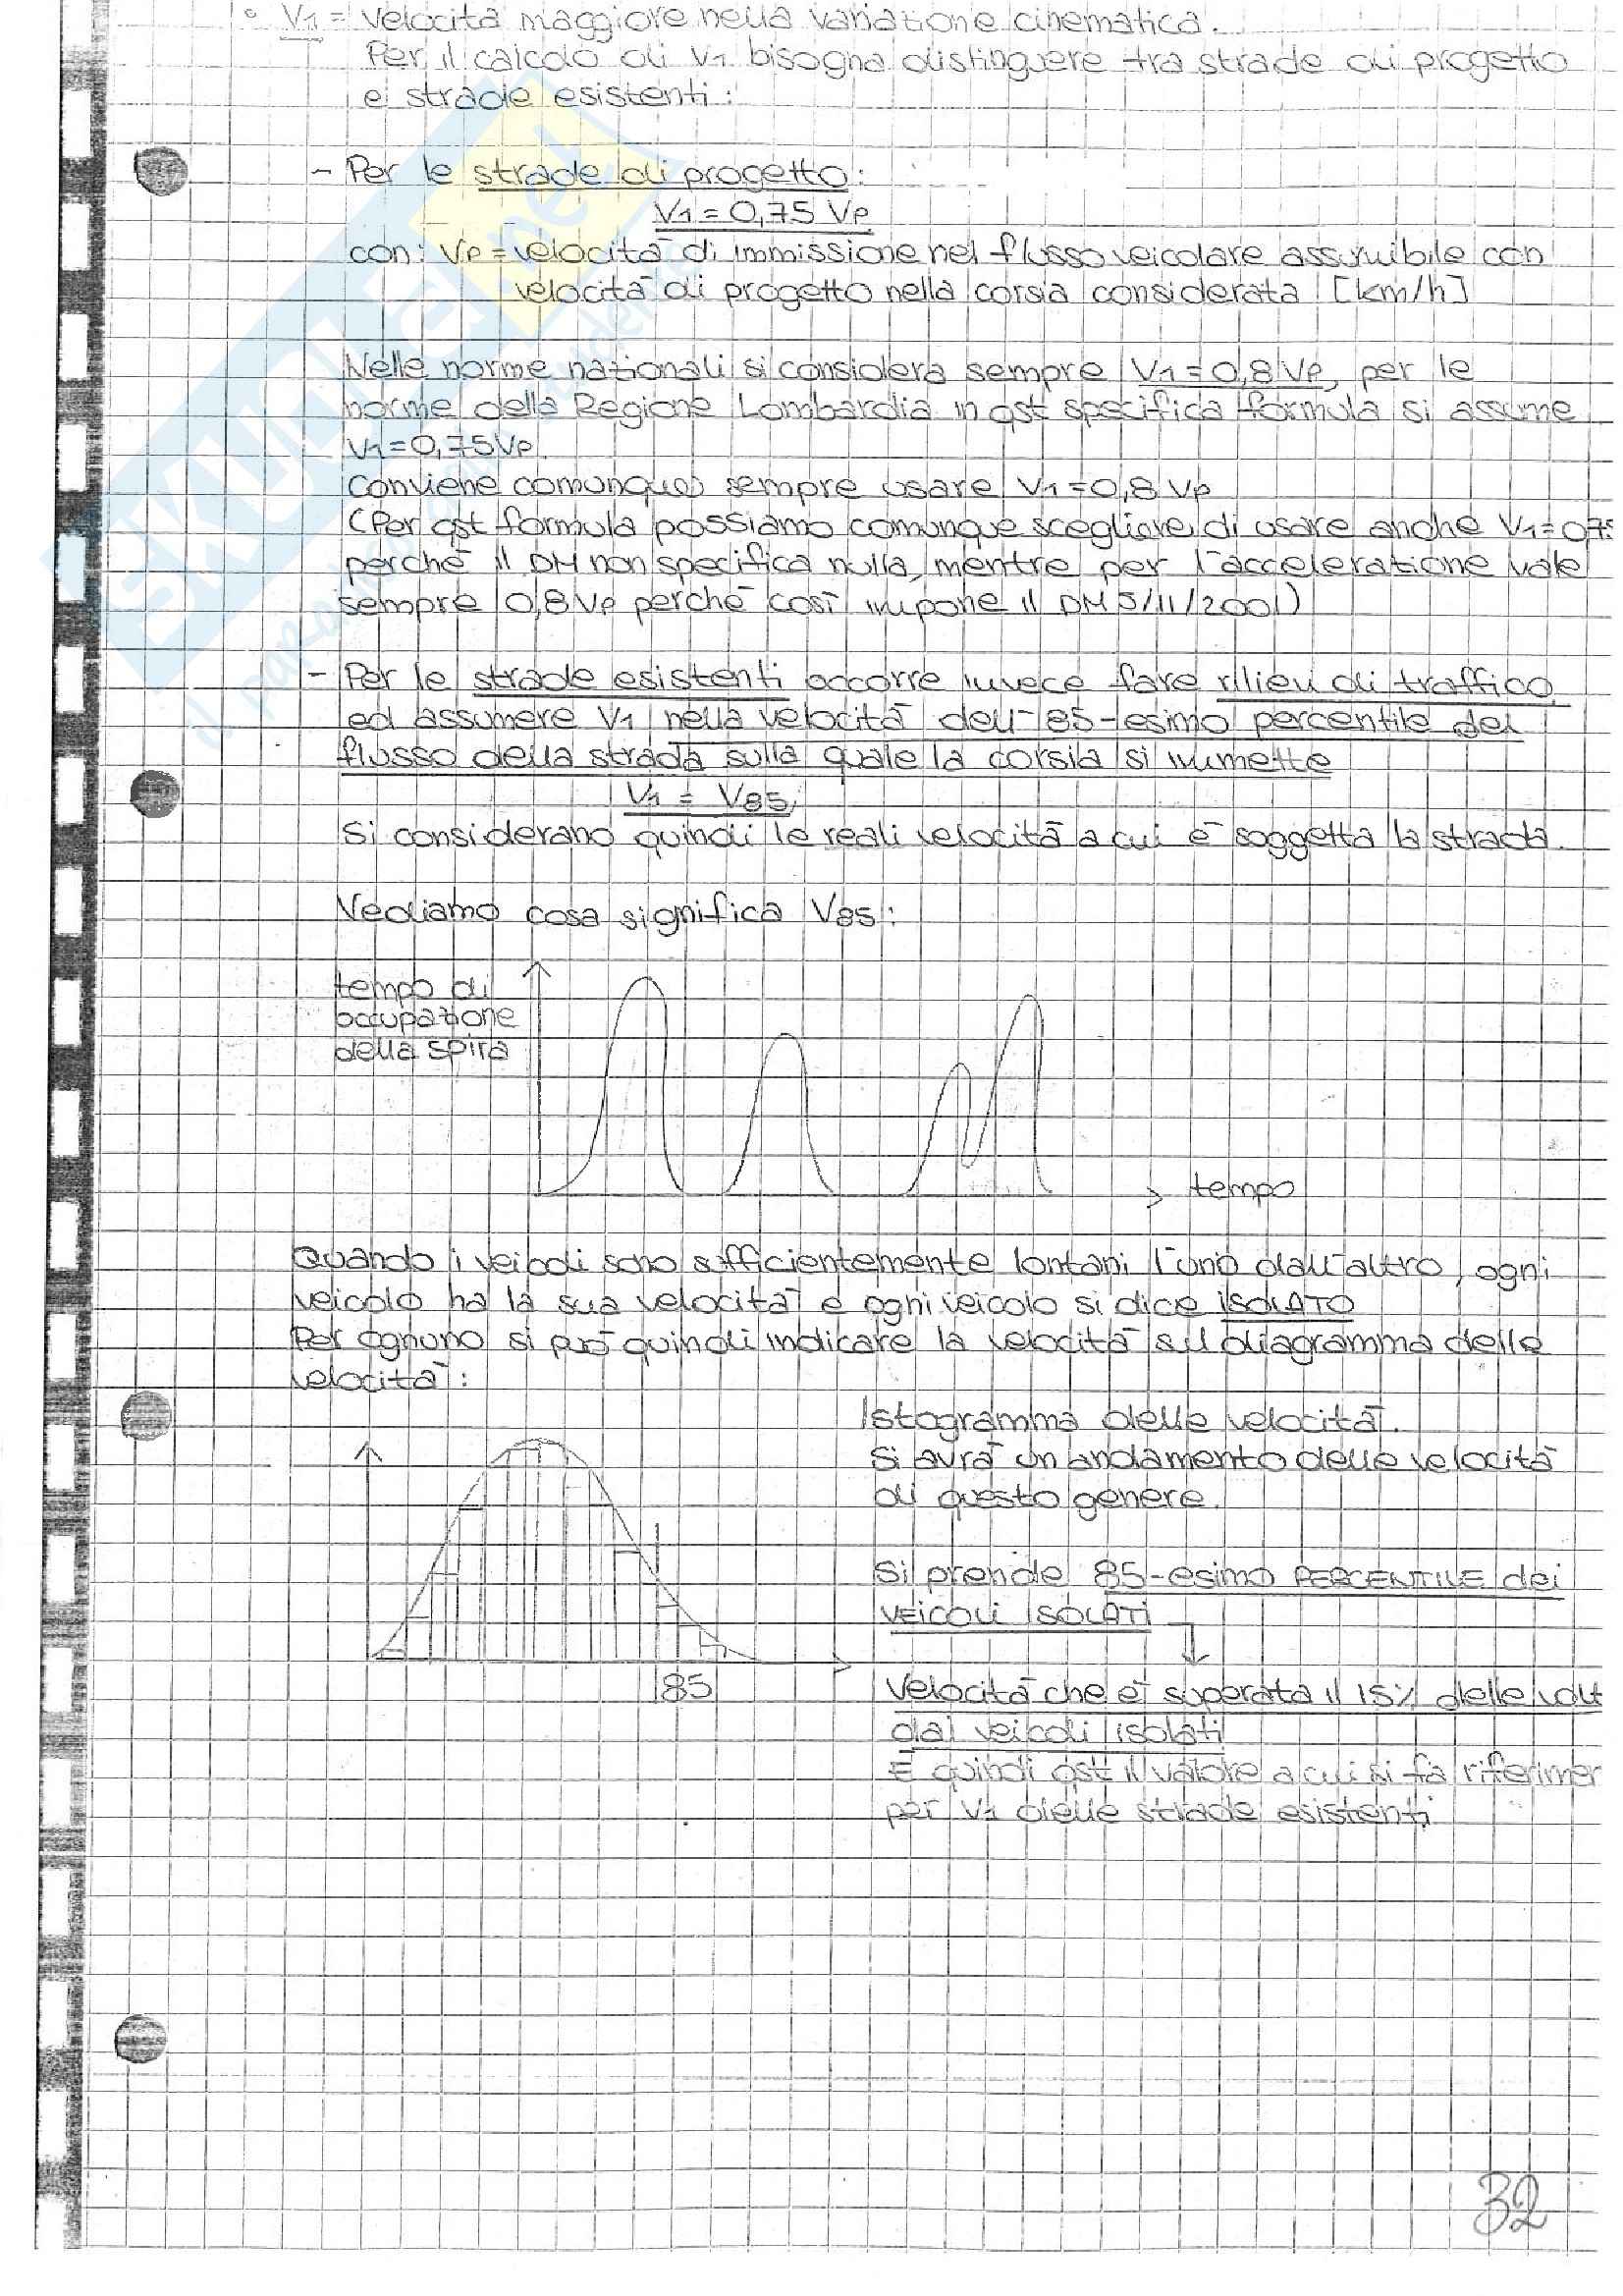 ° V1 = velocità maggiore nella variazione cinematica.
Per il calcolo di V1 bisogna distinguere tra strade di progetto
e strade esistenti:
- Per le strade di progetto:
V1 = 0,75 Vp
con: Vp = velocità di immissione nel flusso veicolare assumibile con
velocità di progetto nella corsia considerata [km/h]
Nelle norme nazionali si considera sempre V1 = 0,8 Vp, per le
norme della Regione Lombardia in qst specifica formula si assume
V1 = 0,75 Vp.
Conviene comunque sempre usare V1 = 0,8 Vp
(Per qst formula possiamo comunque scegliere di usare anche V1 = 0,75
perchè il DM non specifica nulla, mentre per l'accelerazione vale
sempre 0,8 Vp perchè così impone il DM 5/11/2001)
- Per le strade esistenti occorre invece fare rilievi di traffico
ed assumere V1 nella velocità dell'85-esimo percentile del
flusso della strada sulla quale la corsia si immette
V1 = V85
Si considerano quindi le reali velocità a cui è soggetta la strada.
Vediamo cosa significa V85:
tempo di
occupazione
della spira
tempo
Quando i veicoli sono sufficientemente lontani l'uno dall'altro, ogni
veicolo ha la sua velocità e ogni veicolo si dice ISOLATO
Per ognuno si può quindi indicare la velocità sul diagramma delle
velocità:
Istogramma delle velocità.
Si avrà un andamento delle velocità
di questo genere.
Si prende 85-esimo PERCENTILE dei
VEICOLI ISOLATI
85
Velocità che è superata il 15% delle volt
dai veicoli isolati
È quindi qst il valore a cui si fa riferimen
per V1 delle strade esistenti
32
SKUOLA.net